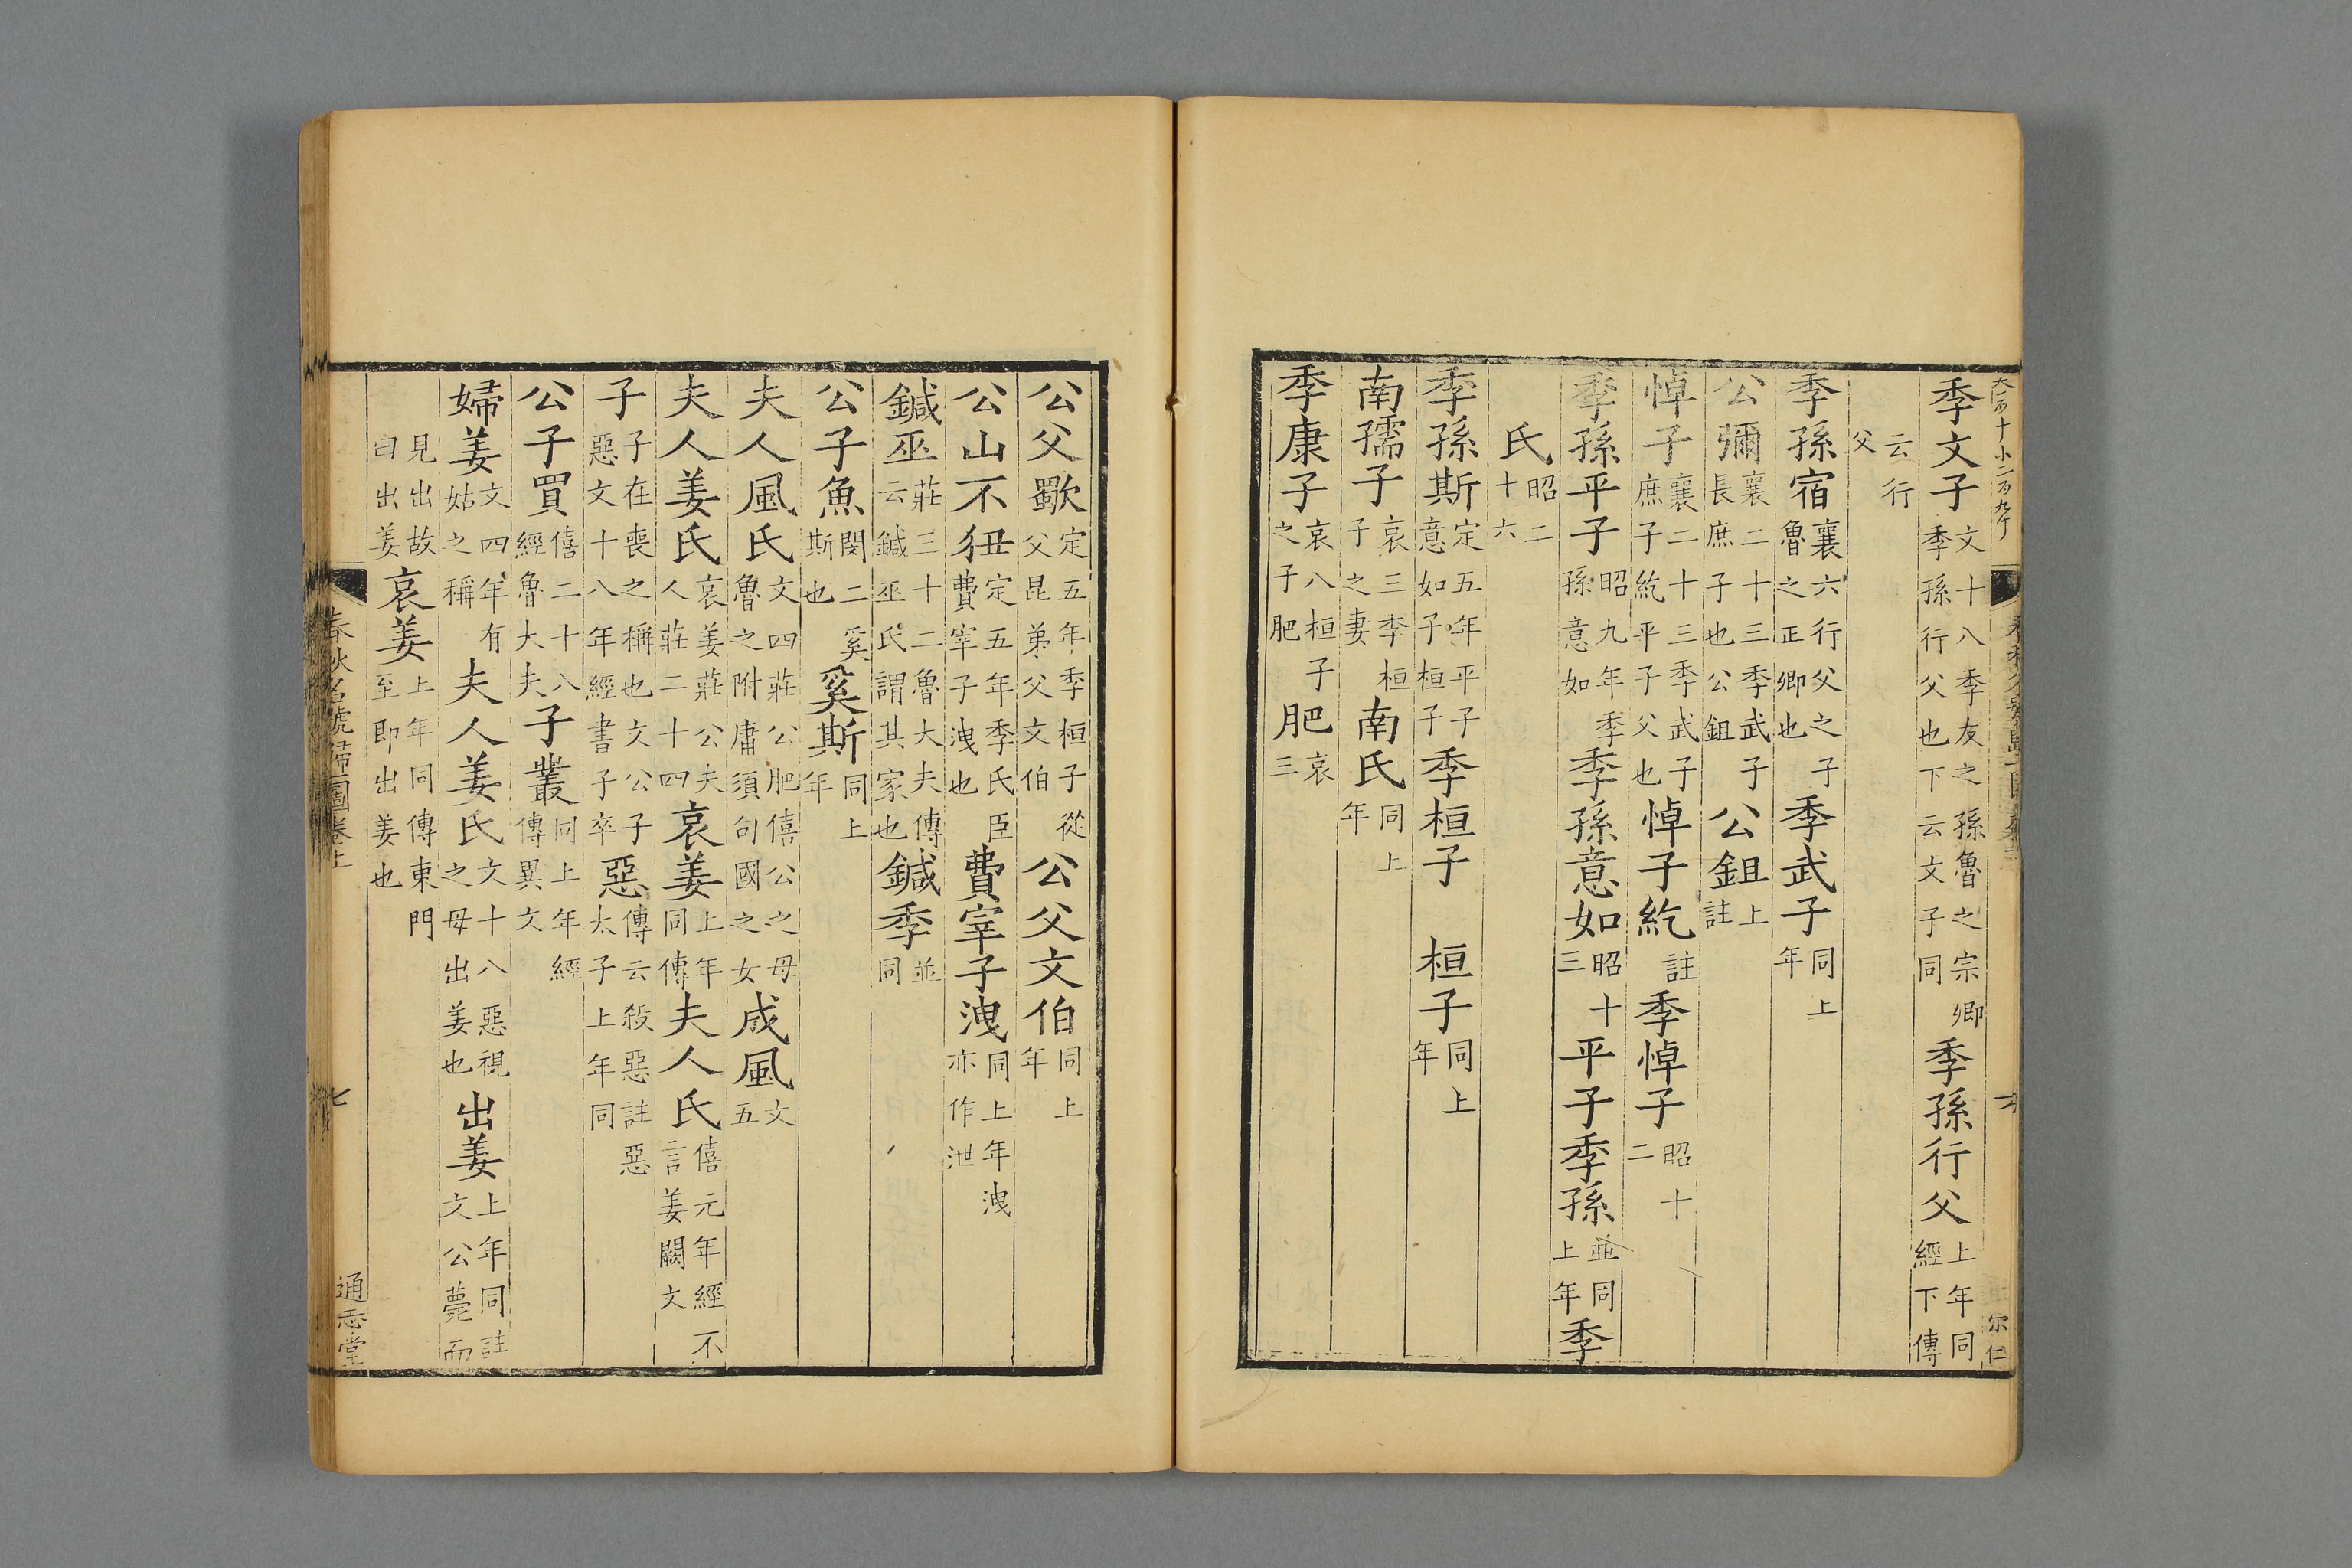 季文子文十八季友之孫魯之宗卿季孫行父也下云文子同季孫行父上年同經下傳
云行父
季孫宿襄六行父之子魯之正卿也季武子同上年
公彌襄二十三季武子長庶子也公鉏公鉏上註
悼子襄二十三季武子庶子紇平子父也悼子紇註季悼子昭十二
季孫平子昭九年季孫意如季孫意如昭十三平子季孫並同上年季
氏昭二十六
季孫斯定五年平子意如子桓子季桓子 桓子同上年
南孺子哀三季桓子之妻南氏同上年
季康子哀八桓子之子肥肥哀三
公父歜定五年季桓子從父昆弟父文伯公父文伯同上年
公山不狃定五年季氏臣費宰子洩也費宰子洩同上年洩亦作泄
鍼巫莊三十二魯大夫傳云鍼巫氏謂其家也鍼季並同
公子魚閔二奚斯也奚斯同上年
夫人風氏文四莊公肥僖公之母魯之附庸須句國之女成風文五
夫人姜氏哀姜莊公夫人莊二十四哀姜上年同傳夫人氏僖元年經不言姜闕文
子子在喪之稱也文公子惡文十八年經書子卒惡傳云殺惡註惡太子上年同
公子買僖二十八經魯大夫子叢同上年經傳異文
婦姜文四年有姑之稱夫人姜氏文十八惡視之母出姜也出姜上年同註文公薨而
見出故曰出姜哀姜上年同傳東門至即出姜也
春秋名號歸一圖卷上
七
通志堂